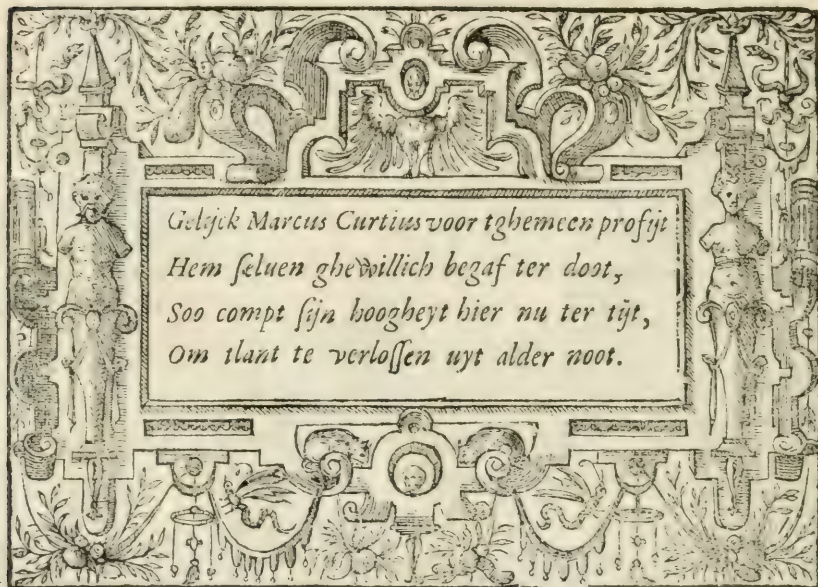 Gelijck Marcus Curtius voor tghemeen profijt
Hem ſeluen ghewillich begaf ter doot,
Soo compt ſijn hoogheyt hier nu ter tijt,
Om tlant te verloſſen uyt alder noot.